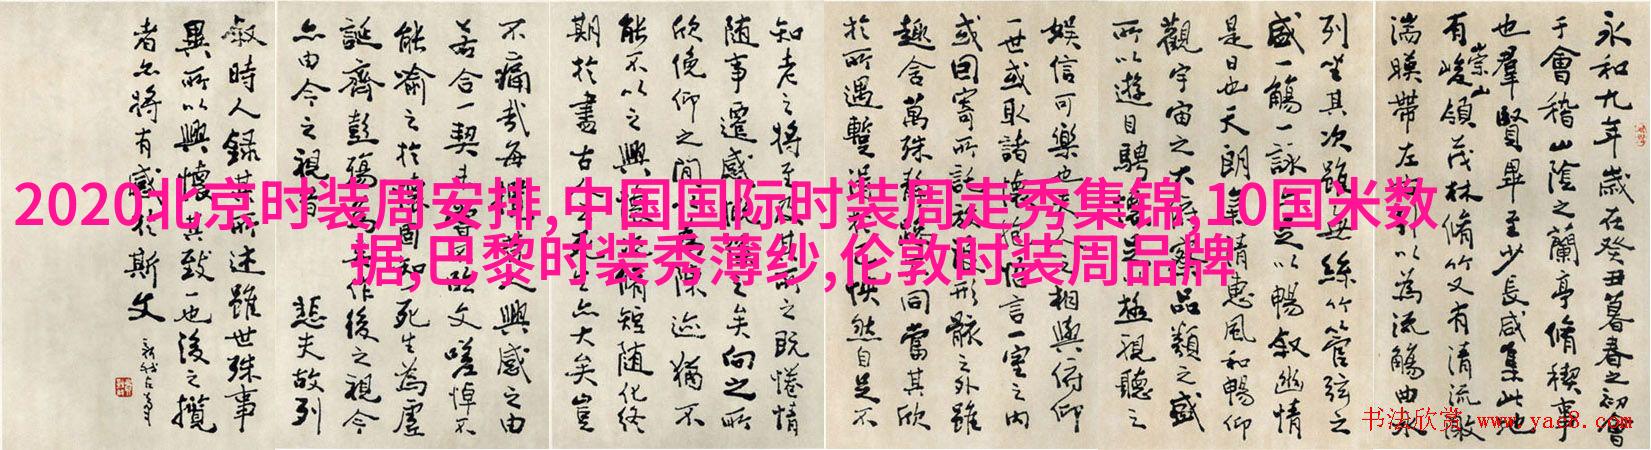 2020北京时装周安排,中国国际时装周走秀集锦,10国米数
据,巴黎时装秀薄纱,伦敦时装周品牌
永和九年歲在癸丑暮春之初會
于會稽山陰之蘭亭脩稧事
也羣賢畢至少長咸集此地
有崇山峻領茂林脩竹又有清流激
湍暎帶左右引以為流觴曲水
列坐其次雖無絲竹管弦之
盛一觴一詠亦足以暢敘幽情
是日也天朗氣清惠風和暢仰
觀宇宙之大俯察品類之盛
所以遊目騁懷足以極視聽之
娛信可樂也夫人之相與俯仰
一世或取諸懷抱悟言一室之內
或因寄所託放浪形骸之外雖
趣舍萬殊靜躁不同當其欣
於所遇蹔得於己怏然自足不
知老之將至及其所之既惓情
隨事遷感慨係之矣向之所
欣俛仰之間以為陳迹猶不
能不以之興懷況脩短隨化終
期於盡古人云死生亦大矣豈
不痛哉每攬昔人興感之由
若合一契未嘗不臨文嗟悼不
能喻之於懷固知一死生為虛
誕齊彭殤為妄作後之視今
亦由今之視昔悲夫故列
敘時人錄其所述雖世殊事
異所以興懷其致一也後之攬
者亦將有感於斯文
书法欣赏 www.yac8.com